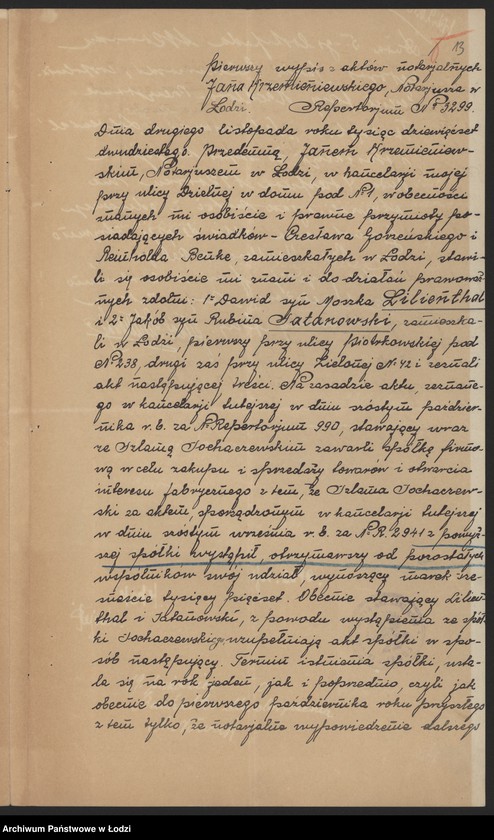 13
Pierwszy wypis z aktów notarjalnych
Jana Krzemieniewskiego, Notarjusza w
Łodzi. Repertorjum № 3299.
Dnia drugiego listopada roku tysiąc dziewięćset
dwudziestego. Przedemną, Janem Krzemieniew-
skim, Notarjuszem w Łodzi, w kancelarji mojej
przy ulicy Dzielnej w domu pod № 1, w obecności
znanych mi osobiście i prawne przymioty po-
siadających świadków – Czesława Gorzeńskiego i
Reinholda Benke, zamieszkałych w Łodzi, stawi-
li się osobiście mi znani i do działań prawowa-
nych zdolni: 1º Dawid syn Moszka Lilienthal
i 2º Jakób syn Rubina Tatanowski, zamieszka-
li w Łodzi, pierwszy przy ulicy Piotrkowskiej pod
№ 238, drugi zaś przy ulicy Zielonej № 42 i zeznali
akt następującej treści. Na zasadzie aktu, zeznane-
go w kancelarji tutejszej w dniu szóstym paździer-
nika r. b. za № Repertorjum 990, stawający wraz
ze Szlamą Sochaczewskim zawarli spółkę firmo-
wą w celu zakupu i sprzedaży towarów i otwarcia
interesu fabrycznego z tem, że Szlama Sochaczew-
ski za aktem, sporządzonym w kancelarji tutejszej
w dniu szóstym września r. b. za № R. 2941 z powyż-
szej spółki wystąpił, otrzymawszy od pozostałych
wspólników swój udział, wynoszący marek
tysięcy pięćset. Obecnie stawający Lilien-
thal i Tatanowski, z powodu wystąpienia ze spół-
ki Sochaczewskiego uzupełniają akt spółki w spo-
sób następujący. Termin istnienia spółki, usta-
la się na rok jeden, jak i poprzednio, czyli jak
obecnie do pierwszego października roku przyszłego
z tem tylko, że notarjalne wypowiedzenie dalszego
Archiwum Państwowe w Łodzi